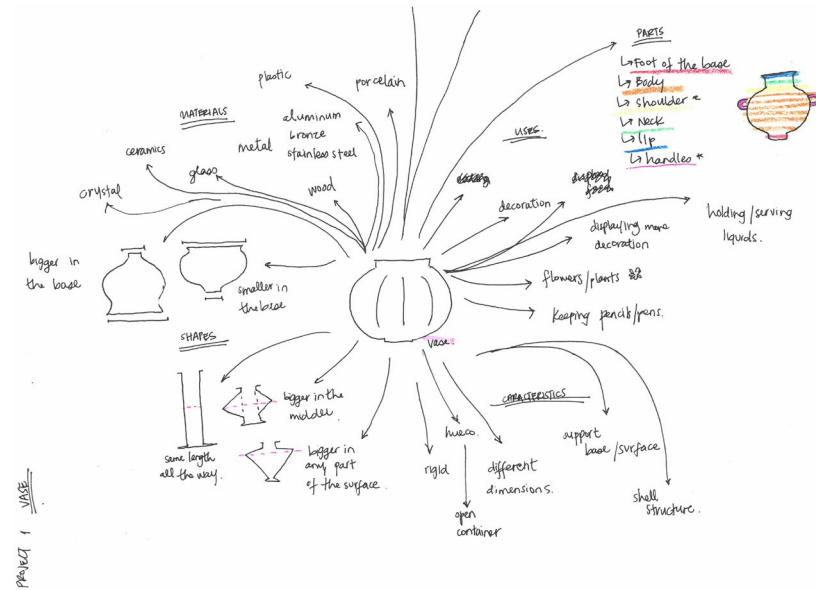 PARTS
↳ Foot of the base
↳ Body
↳ shoulder *
↳ Neck
↳ lip
↳ handles *
plastic
porcelain
MATERIALS
aluminum
bronze
stainless steel
metal
ceramics
glass
wood
crystal
USES.
decoration
displaying more
decoration
holding/serving
liquids.
flowers/plants
keeping pencils/pens.
bigger in
the base
smaller in
the base
SHAPES
vase.
same length
all the way.
bigger in the
middel.
bigger in
any part
of the surface.
CARACTERISTICS
hueco.
rigid
open
container
different
dimensions.
support
base/surface
shell
structure.
PROJECT 1 VASE